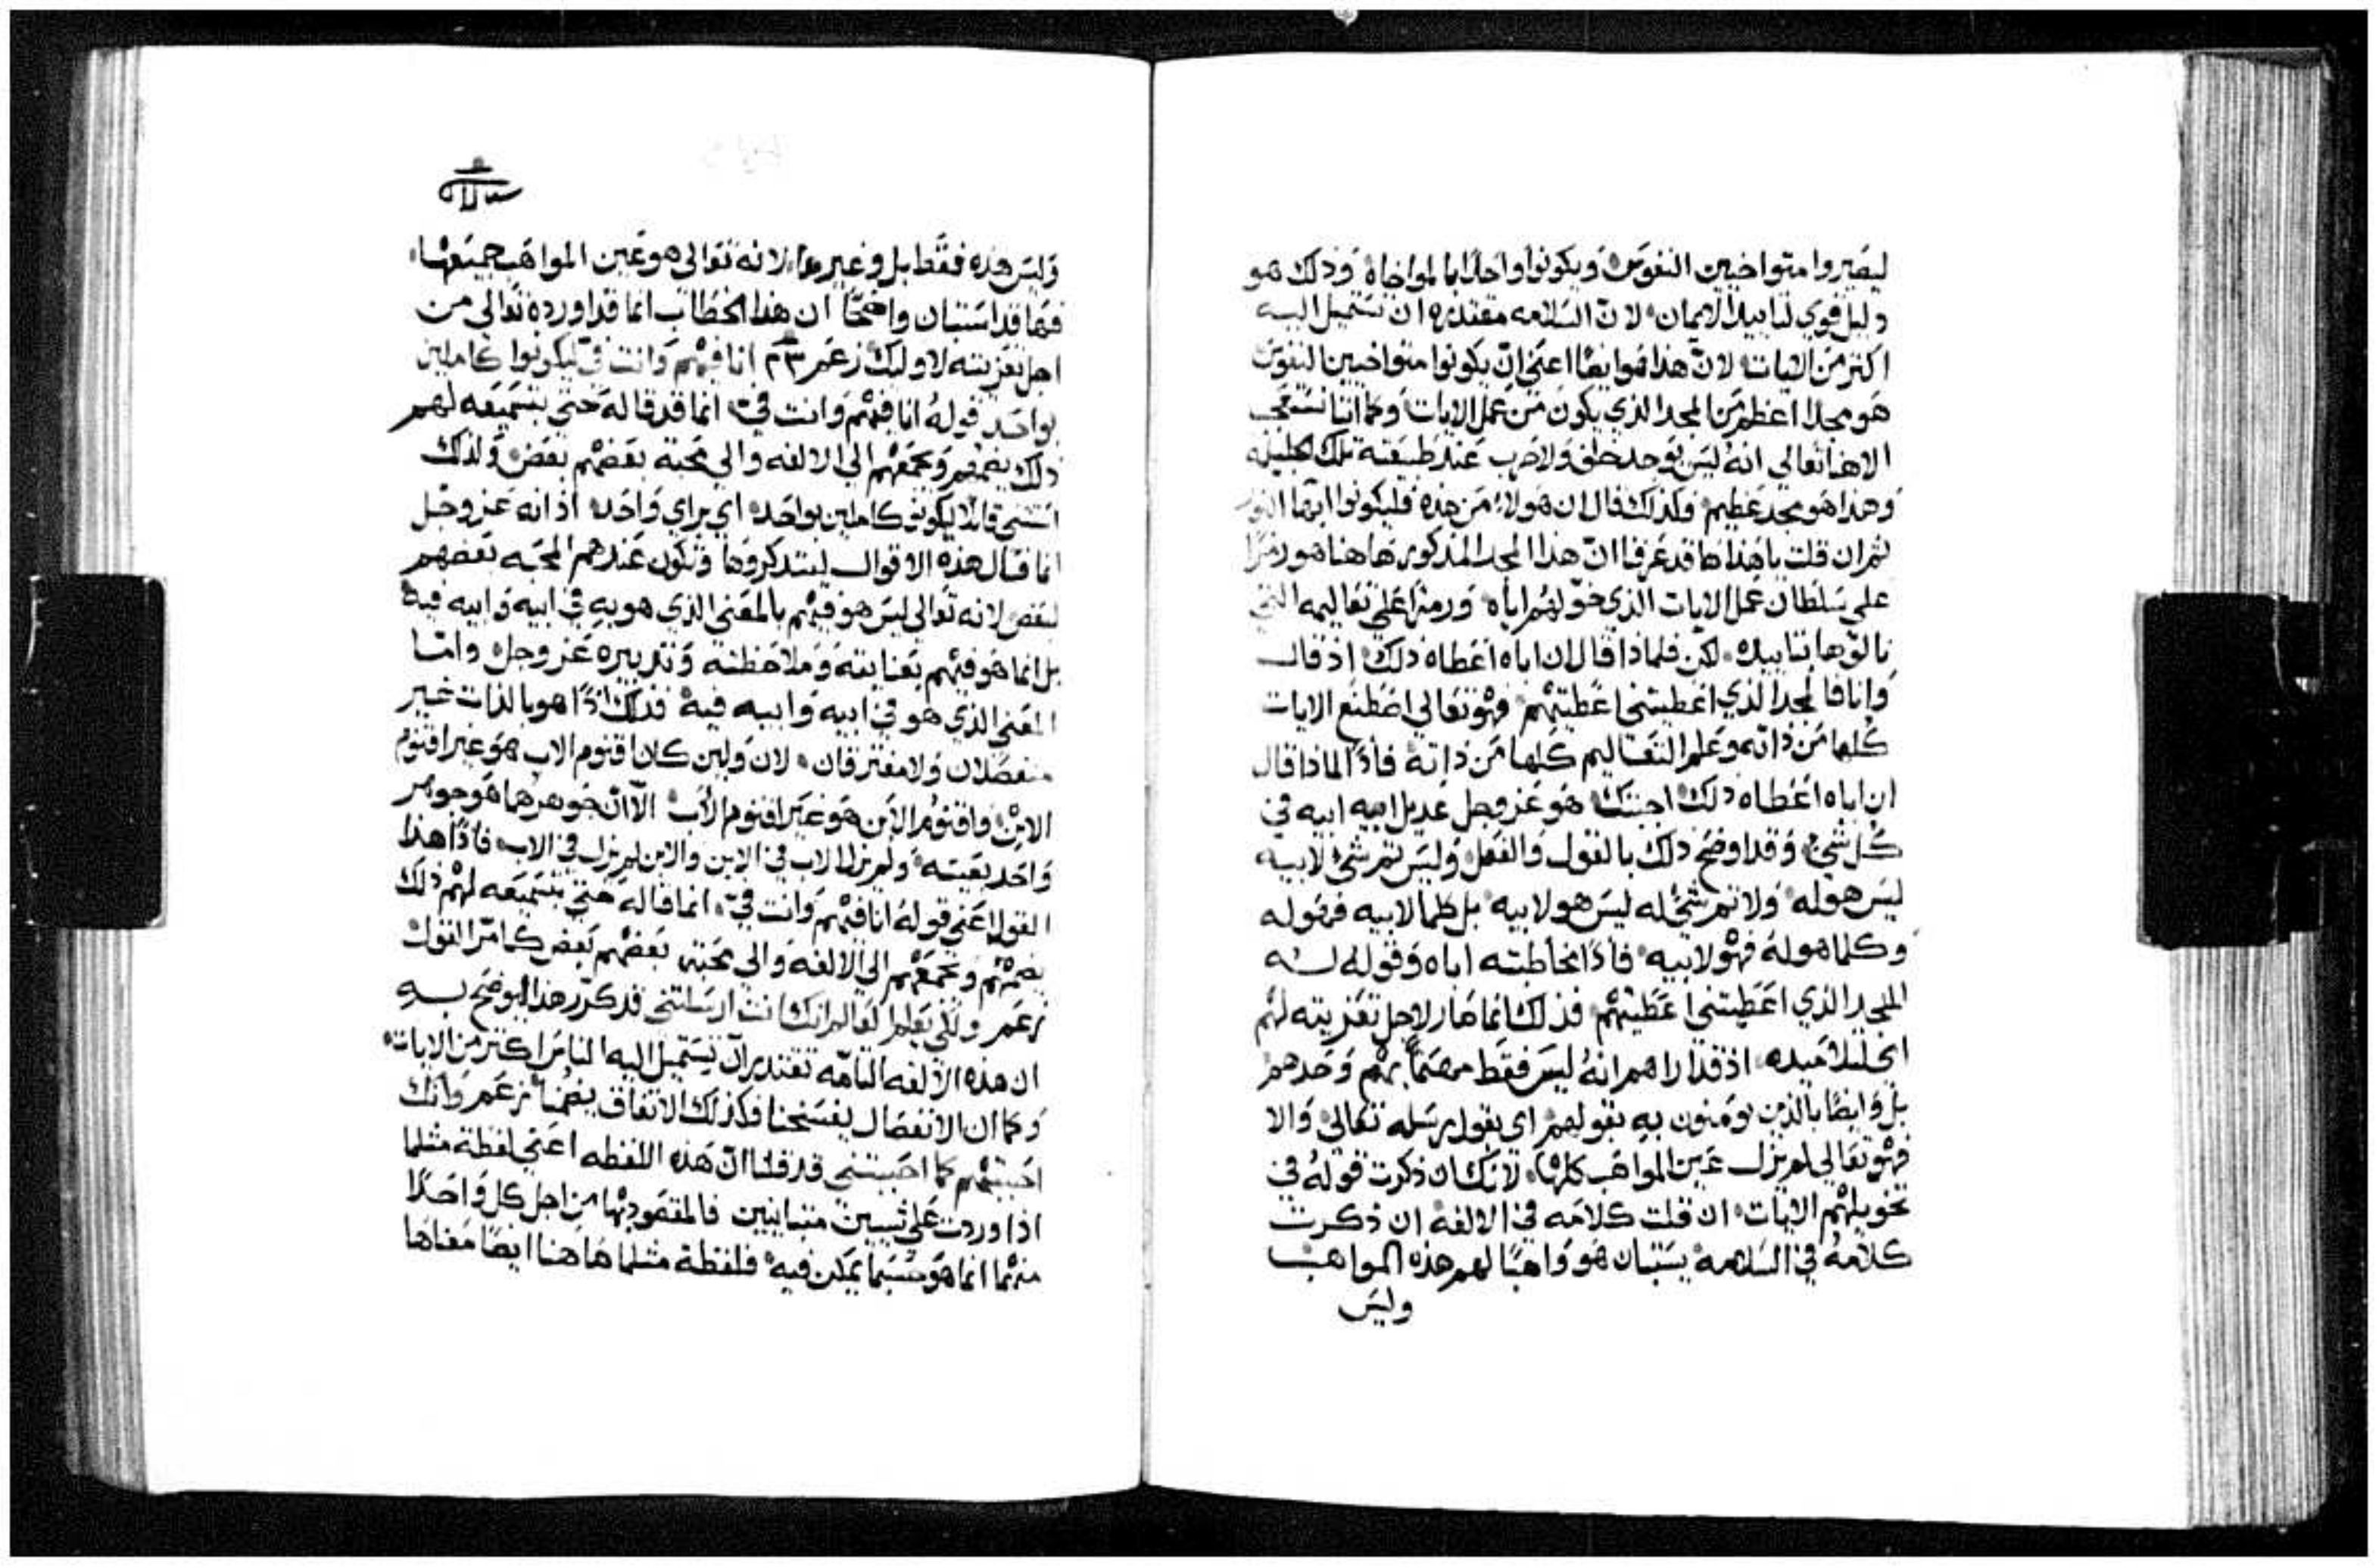 ليصيروا متواخيين النفوس ويكونوا واحدًا بالمواخاة وذلك هو
دليل قوي لتاييد الايمان لان السلامه مقتدره ان تستميل اليه
اكثر من الايات لانّ هذا هو ايضًا اعني ان يكونوا متواخيين النفوس
هو مجدًا اعظم من المجد الذي يكون من عمل الايات وكما اننا نتعجب
الاهنا تعالى انه ليس يوجد خلف ولا حرب عند طبيعته تلك الجليله
وهذا هو مجد عظيم ولذلك قال ان هولاء من هذه فليكونوا ايها
ثم ان قلت يا هذا ها قد عرفنا انّ هذا المجد المذكور هاهنا هو رمزًا
على سلطان عمل الايات الذي خوّلهم اياه ورمزًا على تعاليمه التي
نالوها بتاييده لكن فلماذا قال ان اباه اعطاه ذلك اذ قال
وانا فالمجد الذي اعطيتني اعطيتهم فهو تعالى اصطنع الايات
كلها من ذاته وعلم التعاليم كلها من ذاته فاذًا لماذا قال
ان اباه اعطاه ذلك اجبتك هو عز وجل عديل ابيه في
كل شيء وقد اوضح ذلك بالقول والفعل وليس ثم شيء لابيه
ليس هو له ولا ثم شيء له ليس هو لابيه بل كلما لابيه فهو له
وكلما هو له فهو لابيه فاذًا مخاطبته اباه وقوله له
المجد الذي اعطيتني اعطيتهم فذلك انما صار لاجل تعزيته لهم
اي لتلاميذه اذ قد اراهم انه ليس فقط مهتمًا بهم وحدهم
بل وايضًا بالذين يومنون به بقولهم اي بقول رسله تعالى والا
فهو تعالى لم يزل عين المواهب كلها لانك ان ذكرت قوله في
تخويلهم الايات ان قلت كلامه في الالفة ان ذكرت
كلامه في السلامه يستبان هو واهبًا لهم هذه المواهب
وليس
وليس هذه فقط بل وغيرها لانه تعالى هو عين المواهب جميعها
فها قد استبان واضحًا ان هذا الخطاب انما قد اورده تعالى من
اجل تعزيته لاوليك زعم ٢٣م انا فيهم وانت فيّ ليكونوا كاملين
بواحد قوله انا فيهم وانت فيّ انما قد قاله حتى بتسميعه لهم
ذلك يضمهم ويجمعهم الى الالفه والى محبة بعضهم بعض ولذلك
استثنى قايلًا ليكونو كاملين بواحد اي براي واحد اذ انه عز وجل
انما قال هذه الاقوال ليتدكروها وتكون عندهم المحبه بعضهم
لبعض لانه تعالى ليس هو فيهم بالمعنى الذي هو به في ابيه وابيه فيه
بل انما هو فيهم بعنايته وملاحظته وتدبيره عز وجل وامّا
المعنى الذي هو في ابيه وابيه فيه فذلك اذًا هو بالذات غير
منفصلان ولا مفترقان لان ولين كان اقنوم الاب هو غير اقنوم
الابن واقنوم الابن هو غير اقنوم الاب الّا انّ جوهرهما هو جوهر
واحد بعينه ولم يزل الاب في الابن والابن لم يزل في الاب فاذًا هذا
القول اعني قوله انا فيهم وانت فيّ انما قاله حتى بتسميعه لهم ذلك
يضمهم ويجمعهم الى الالفه والى محبة بعضهم بعض كما مرّ القول
زعم ولكي يعلم العالم انك انت ارسلتني قد كرّر هذا ليوضح به
ان هذه الالفه التامّه تقتدير ان تستميل اليه الناس اكثر من الايات
وكما ان الانفصال يفسخنا فكذلك الاتفاق يضمنا زعم وانك
احببتهم كما احببتني قد قلنا انّ هذه اللفظه اعني لفظة مثلما
اذا وردت على شيين متباينين فالمقصود بها من اجل كل واحدًا
منهما انما هو حسبما يمكن فيه فلفظة مثلما هاهنا ايضًا معناها